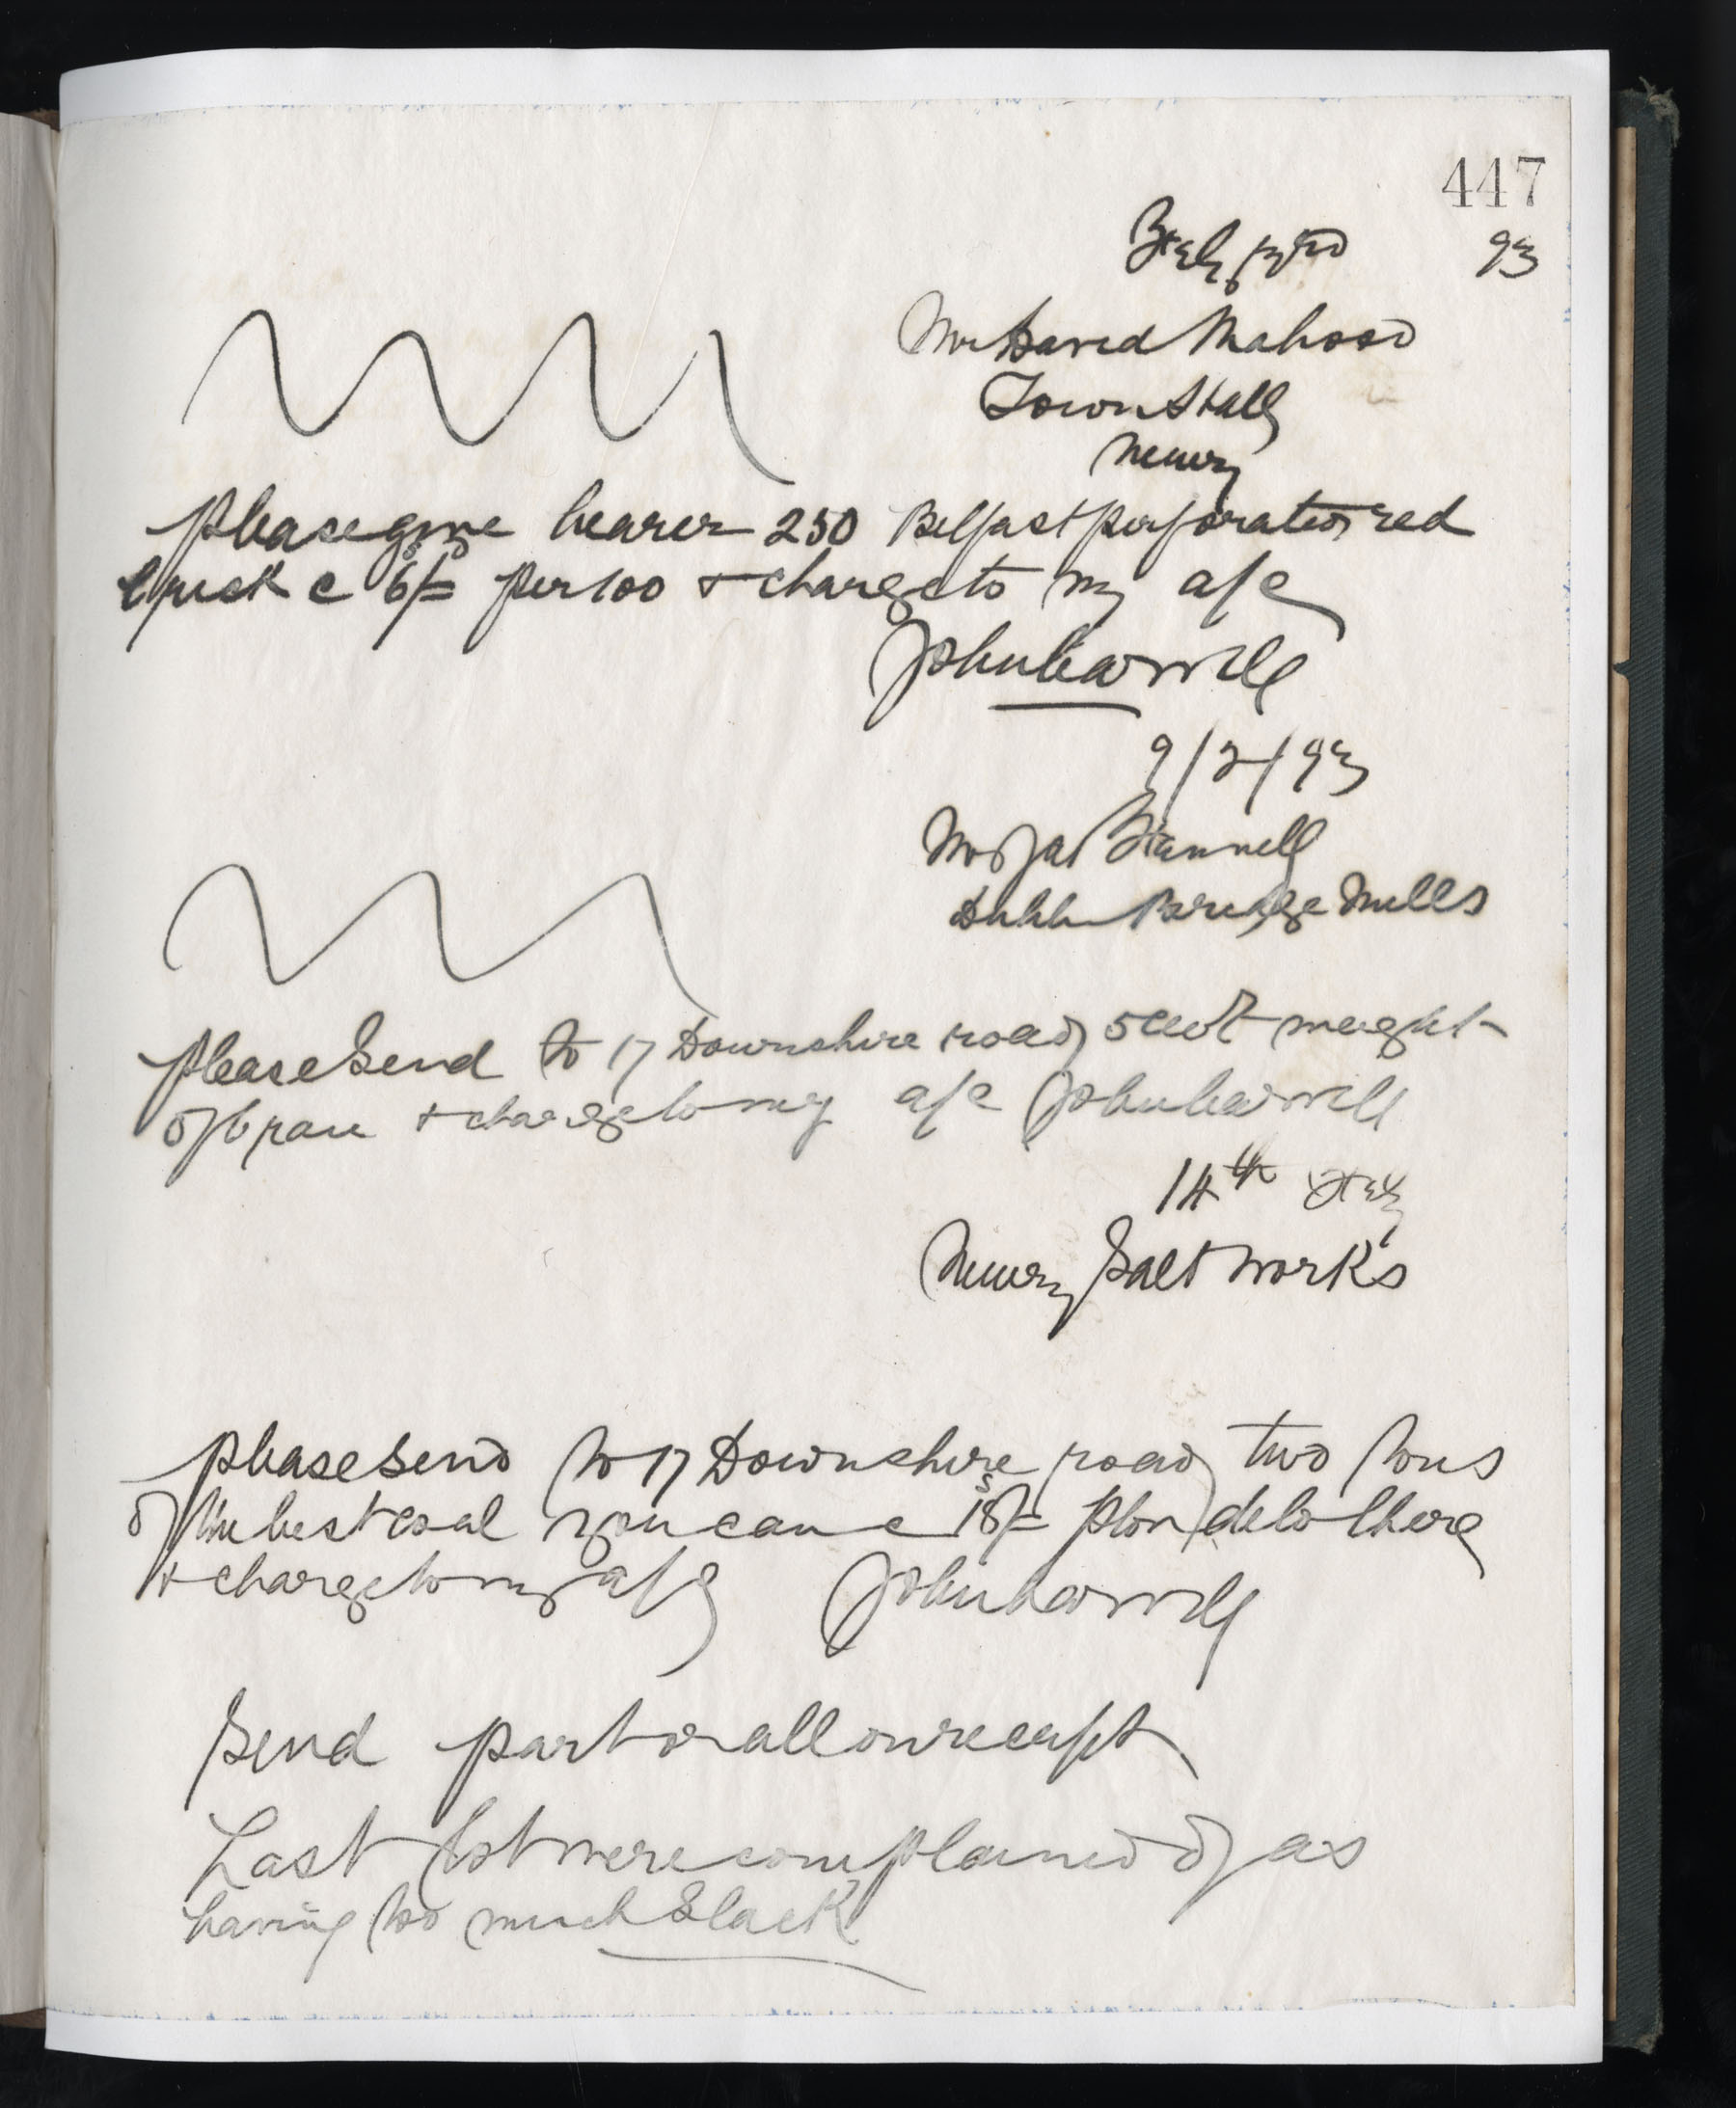 447
Feby 3rd 93
Mr David Mahood
Town Hall
Newry
please give bearer 250 Belfast perforated red
brick @ 6/= per 100 & charge to my a/c
John Carvill
9/2/93
Mr Jas Fennell
Dublin Bridge Mills
please send to 17 Downshire road 5 cwt weight
of bran & charge to my a/c John Carvill
14th Feby
Newry Salt works
please send to 17 Downshire road two tons
of the best coal you can @ 18s/= p ton deld there
& charge to my a/c John Carvill
Send part or all on receipt
Last lot were complained of as
having too much Slack